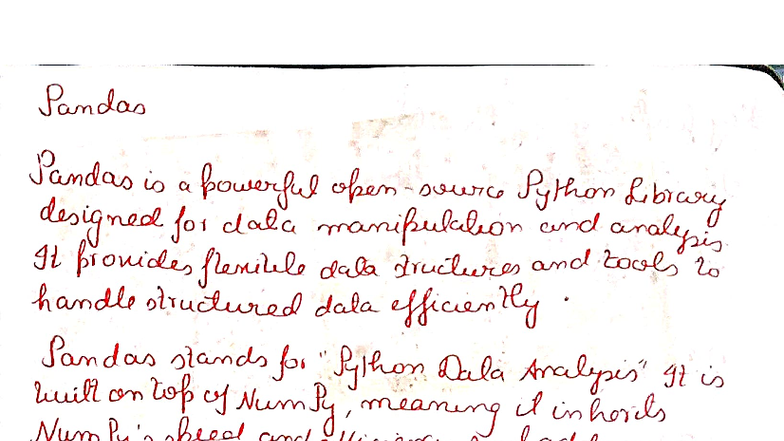 Pandas
Pandas is a powerful open-source Python Library
designed for data manipulation and analysis.
It provides flexible data structures and tools to
handle structured data efficiently.
Pandas stands for "Python Data Analysis" It is
built on top of NumPy, meaning it inherits
NumPy's speed and